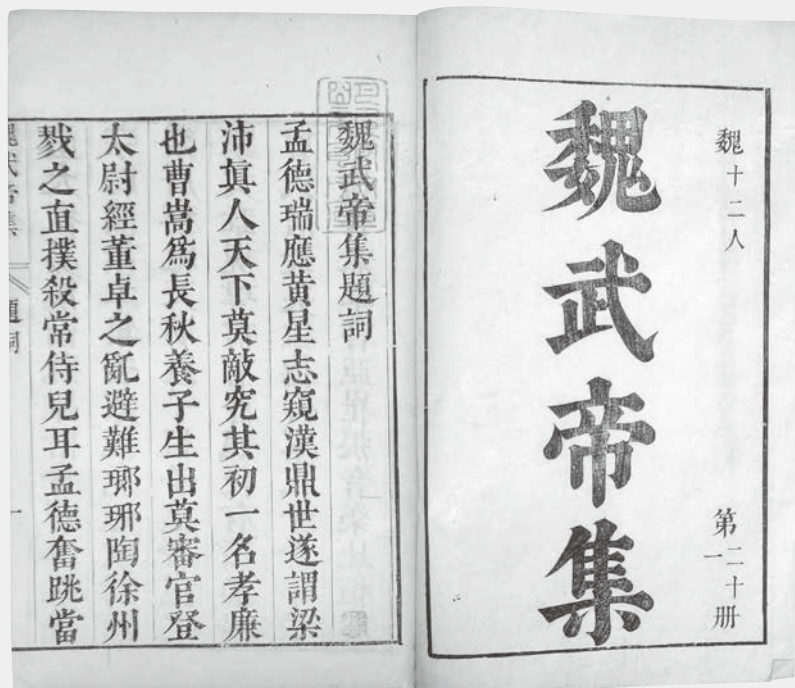 魏十二人
第二十一册
魏武帝集
魏武帝集題詞
孟德瑞應黄星志窺漢鼎世遂謂梁
沛眞人天下莫敵究其初一名孝廉
也曹嵩爲長秋養子生出莫審官登
太尉經董卓之亂避難瑯琊陶徐州
戮之直撲殺常侍兒耳孟德奮跳當
魏武帝集
題詞
一